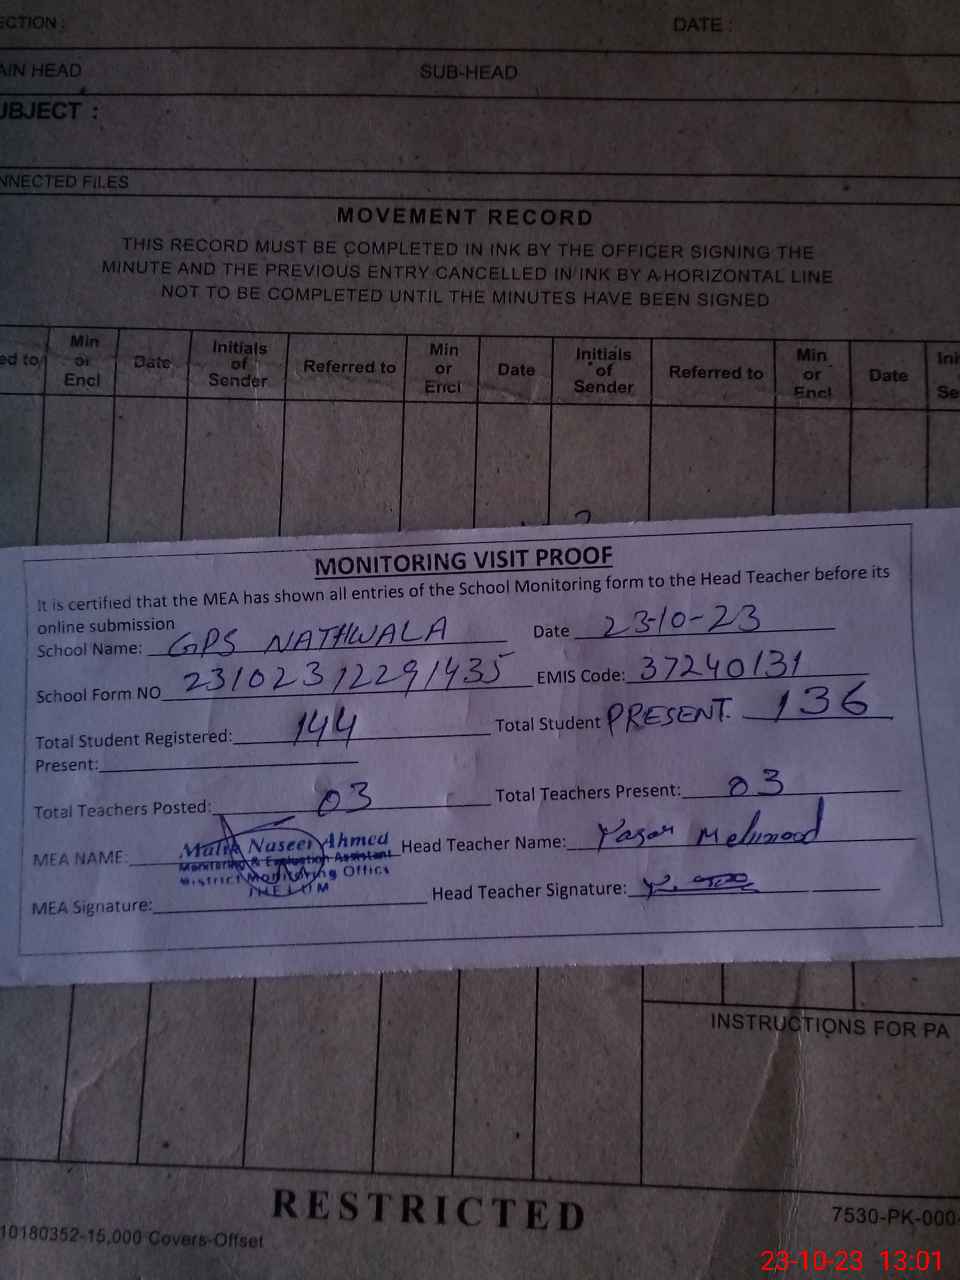 ECTION :
DATE :
AIN HEAD
SUB-HEAD
UBJECT :
NNECTED FILES
MOVEMENT RECORD
THIS RECORD MUST BE COMPLETED IN INK BY THE OFFICER SIGNING THE
MINUTE AND THE PREVIOUS ENTRY CANCELLED IN INK BY A HORIZONTAL LINE
NOT TO BE COMPLETED UNTIL THE MINUTES HAVE BEEN SIGNED
ed to Min or Encl Date Initials of Sender Referred to Min or Encl Date Initials of Sender Referred to Min or Encl Date Ini Se
MONITORING VISIT PROOF
It is certified that the MEA has shown all entries of the School Monitoring form to the Head Teacher before its
online submission
School Name: GPS NATHWALA Date 23-10-23
School Form NO 23102312291435 EMIS Code: 37240131
Total Student Registered: 144 Total Student PRESENT. 136
Present:
Total Teachers Posted: 03 Total Teachers Present: 03
MEA NAME: Malik Naseer Ahmed Head Teacher Name: Yasar Mehmood
Monitoring & Evaluation Assistant
District Monitoring Office
JHELUM
MEA Signature: Head Teacher Signature:
INSTRUCTIONS FOR PA
RESTRICTED
10180352-15,000 Covers-Offset
7530-PK-000-
23-10-23 13:01